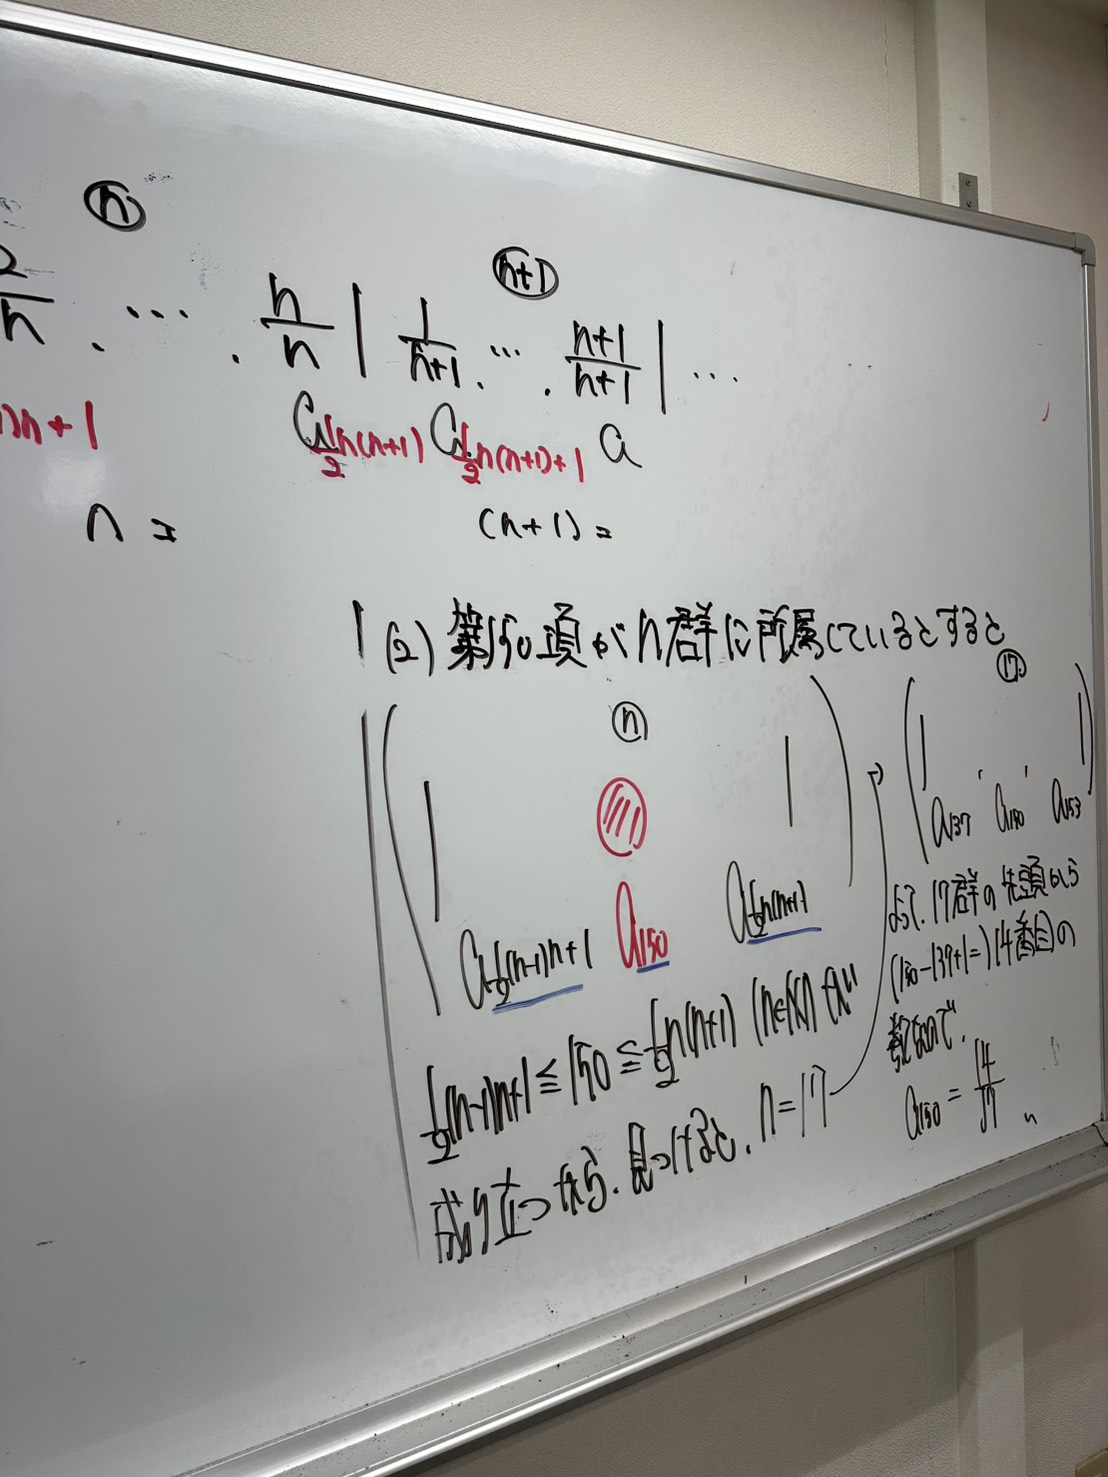 ⓝ
2/n . … . n/n | 1/(n+1) . … . (n+1)/(n+1) | …
)n+1 a_{1/2 n(n+1)} a_{1/2 n(n+1)+1} a
n = (n+1) =
(2) 第150項がn群に所属しているとすると
ⓝ
a_{1/2(n-1)n+1} a_{150} a_{1/2 n(n+1)}
1/2(n-1)n+1 ≦ 150 ≦ 1/2 n(n+1) (n∈N) が
成り立つから. 見つけると. n=17
⑰
a_{137} . a_{150} . a_{153}
よって. 17群の先頭から
(150-137+1=)14番目の
数なので.
a_{150} = 14/17 〃